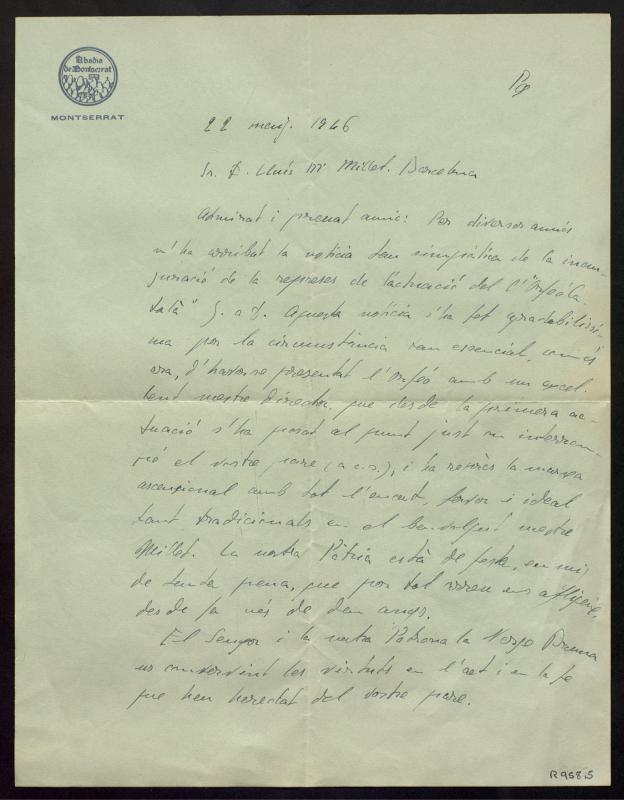 Abadia
de Montserrat
MONTSERRAT
22 maig. 1946
Sr. D. Lluís Mª Millet. Barcelona
Admirat i preuat amic: Per diversos amics
m'ha arribat la notícia tan simpàtica de la inau-
guració de la represes de l'actuació del l'"Orfeó Ca-
talà" G. a D. Aquesta notícia s'ha fet agradabilíssi-
ma per la circumstància tan essencial, com és
ara, d'haver-se presentat l'Orfeó amb un excel.
lent mestre director, que desde la primera ac-
tuació s'ha posat al punt just on interrom-
pé el vostre pare (a c. s.), i ha reprès la marxa
ascensional amb tot l'encert, fervor i ideal
tant tradicionals en el benvolgut mestre
Millet. La nostra Pàtria està de festa, en mig
de tanta pena, que per tot arreu ens afligeix,
desde fa més de deu anys.
El Senyor i la nostra Patrona la Verge Bruna
us conservin les virtuts en l'art i en la fe
que heu heredat del vostre pare.
R 958,5